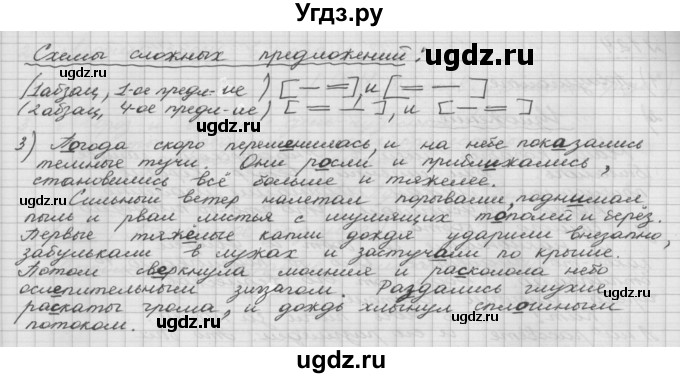 Угдз.ру
Схемы сложных предложений:
(1абзац, 1-ое предл-ие) [— =], и [= —]
(2абзац, 4-ое предл-ие) [= —], и [— =]
3) Погода скоро переменилась, и на небе показались
темные тучи. Они росли и приближались,
становились всё больше и тяжелее.
Сильный ветер налетал порывами, поднимал
пыль и рвал листья с шумящих тополей и берёз.
Первые тяжёлые капли дождя ударили внезапно,
забулькали в лужах и застучали по крыше.
Потом сверкнула молния и расколола небо
ослепительным зигзагом. Раздались глухие
раскаты грома, и дождь хлынул сплошным
потоком.
ugdz.ru
ugdz.ru
ugdz.ru
ugdz.ru
ugdz.ru
ugdz.ru
ugdz.ru
ugdz.ru
ugdz.ru
ugdz.ru
ugdz.ru
ugdz.ru